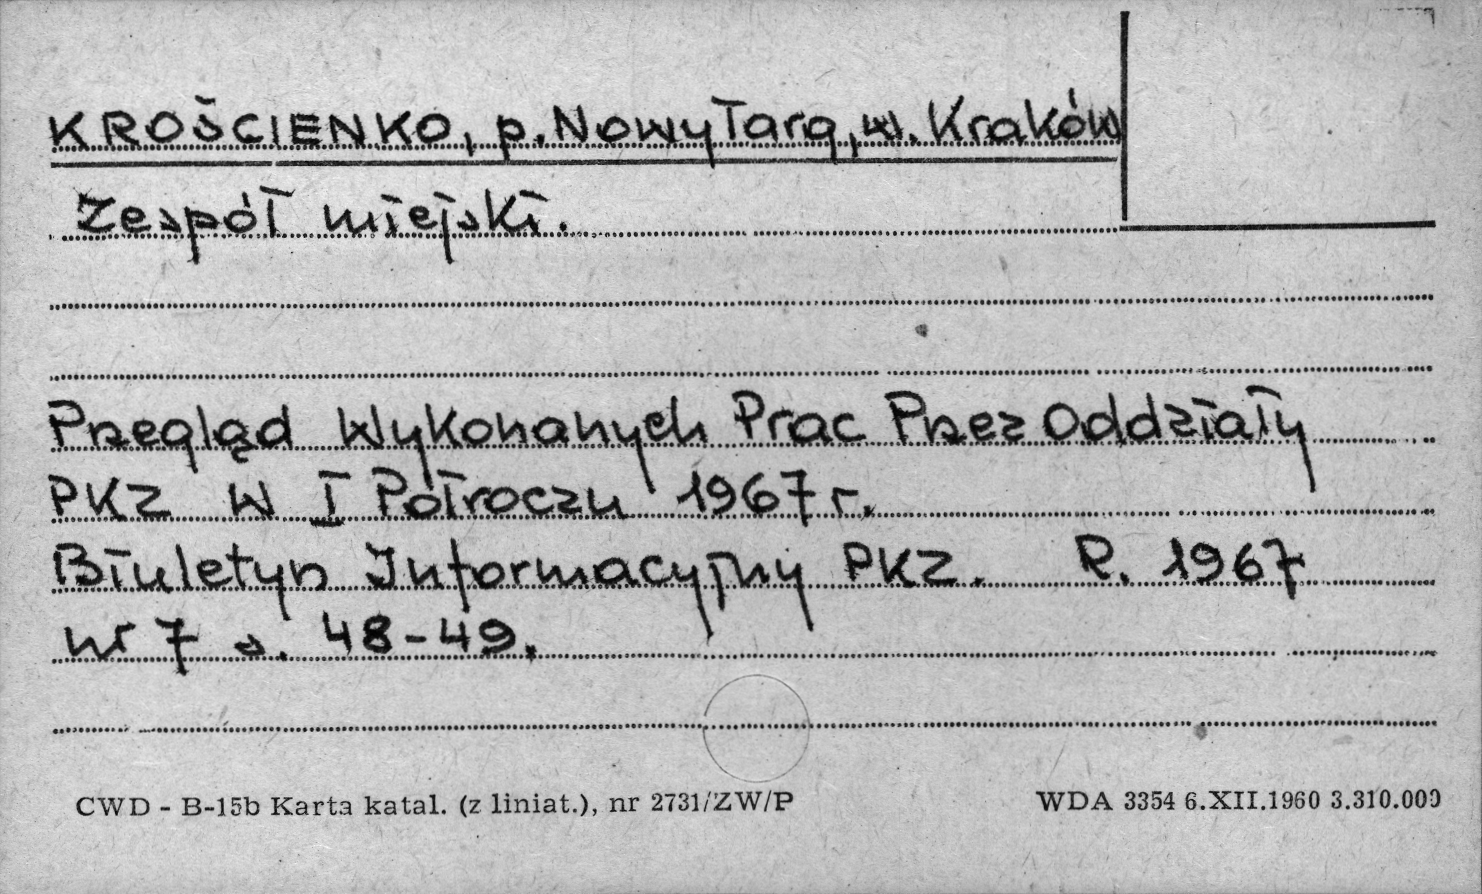 KROŚCIENKO, p. Nowy Targ, w. Kraków
Zespół miejski.
Przegląd Wykonanych Prac Przez Oddziały
PKZ w I Półroczu 1967 r.
Biuletyn Informacyjny PKZ. R. 1967
nr 7 s. 48-49.
CWD - B-15b Karta katal. (z liniat.), nr 2731/ZW/P
WDA 3354 6.XII.1960 3.310.000